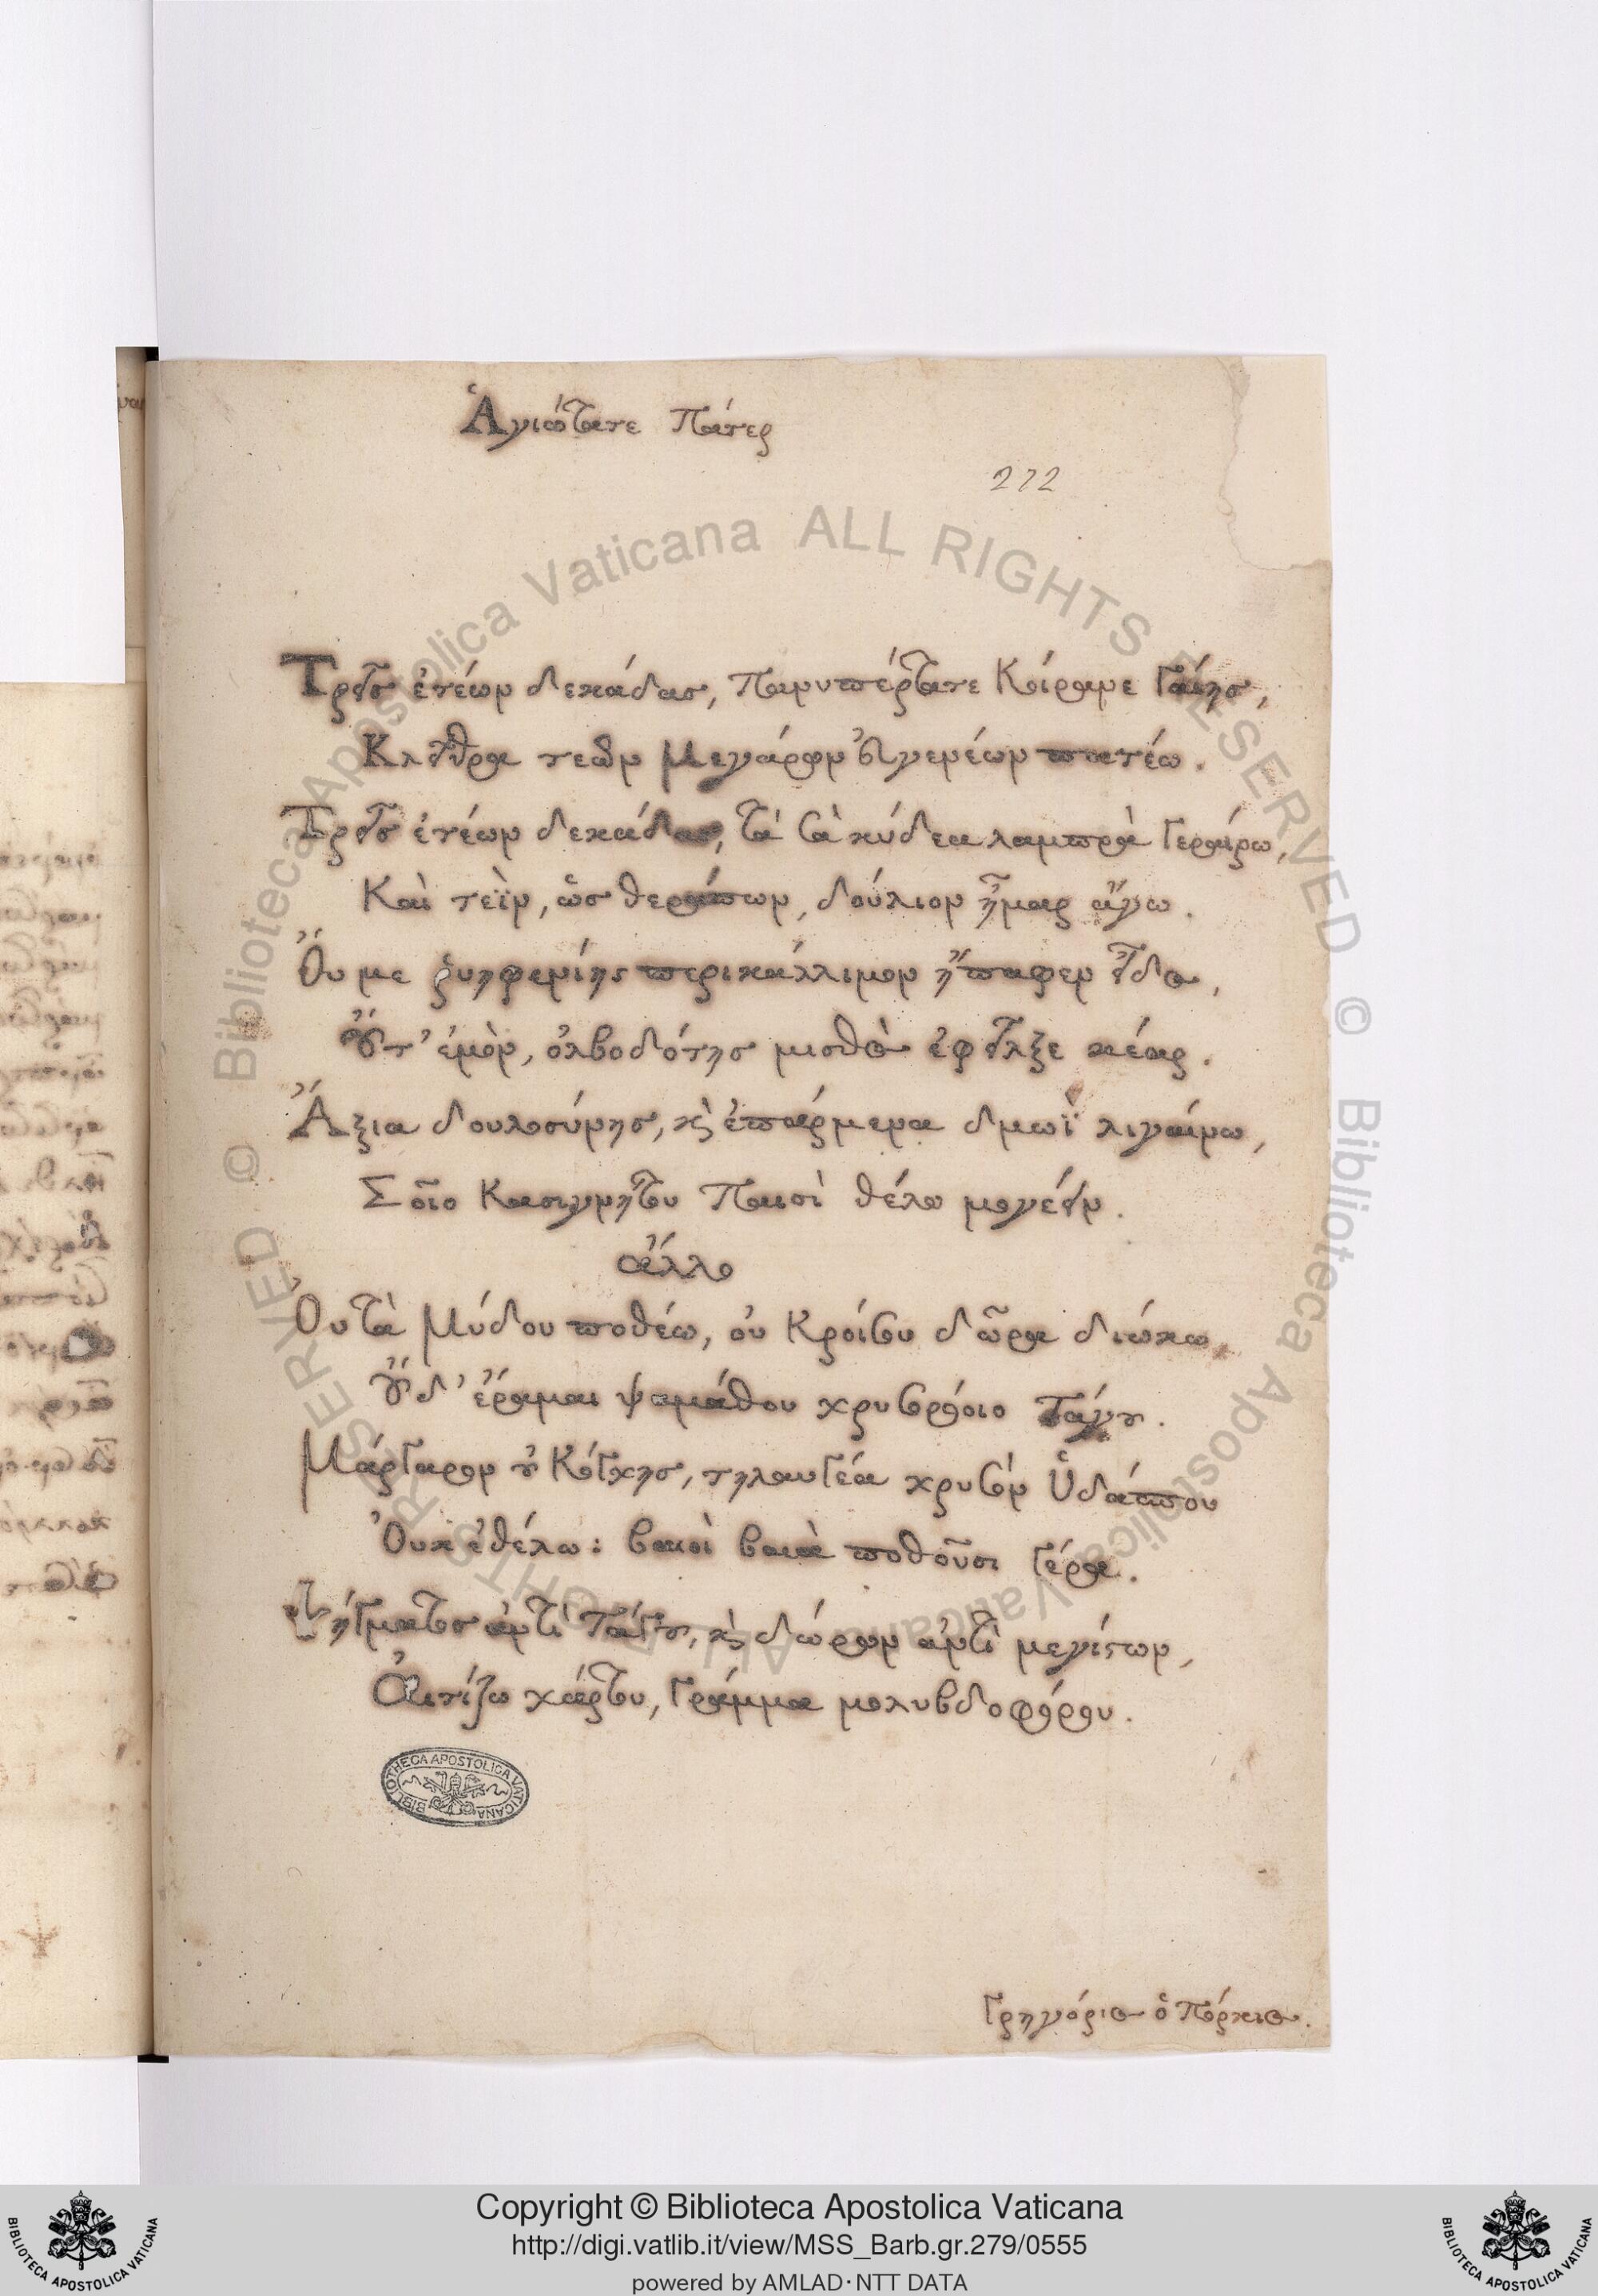 Ἁγιώτατε Πάτερ
272
Τρεῖς ἐτέων δεκάδας, Πανυπέρτατε Κοίρανε Γαίης,
Κλεῖθρα τεῶν Μεγάρων εὐγενέων πατέω.
Τρεῖς ἐτέων δεκάδας, τὰ σὰ κύδεα λαμπρὰ Γεραίρω,
Καὶ τεῒν, ὡς θεράπων, δούλιον ἦμαρ ἄγω.
Ὄυ με ῥυηφενίης περικάλλιμον ἤπαφεν εἶδος,
Οὔτ' ἐμὸν, ὀλβοδότης μισθὸς ἐφεῖλξε κέαρ.
Ἄξια δουλοσύνης, καὶ ἐπάρμενα δμωῒ λιγαίνω,
Σοῖο Κασιγνήτου Παισὶ θέλω μογέειν.
ἄλλο
Ὀυ τὰ Μύδου ποθέω, ὀυ Κροίσου δῶρα διώκω,
Οὔδ' ἔραμαι ψαμάθου χρυσορόοιο Τάγου.
Μάργαρον οὐ Κόγχης, τηλαυγέα χρυσὸν Ὑδάσπου
Ὀυκ ἐθέλω: βαιοὶ βαιὰ ποθοῦσι γέρα.
Ψήγματος ἀντὶ Τάγου, καὶ δώρων ἀντὶ μεγίστων,
Ἀιτίζω χάρτου, Γράμμα μολυβδοφόρου.
Γρηγόριος ὁ Πόρκιος.
BIBLIOTHECA APOSTOLICA VATICANA
© Biblioteca Apostolica Vaticana ALL RIGHTS RESERVED © Biblioteca Apostolica Vaticana ALL RIGHTS RESERVED
Copyright © Biblioteca Apostolica Vaticana
http://digi.vatlib.it/view/MSS_Barb.gr.279/0555
powered by AMLAD·NTT DATA
BIBLIOTECA APOSTOLICA VATICANA
BIBLIOTECA APOSTOLICA VATICANA